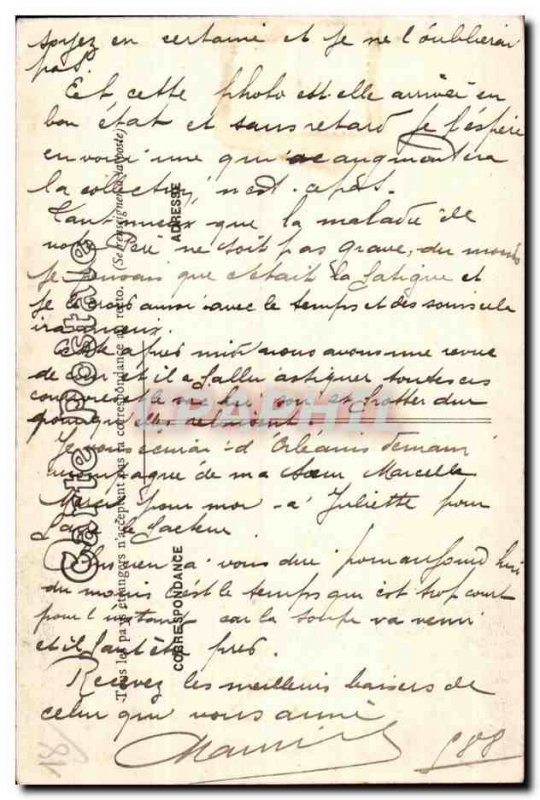 soyez en certaine et je ne l'oublierai
pas.
Et cette photo est-elle arrivée en
bon état et sans retard je l'éspère
en voici une qui augmentera
la collection n'est-ce pas.
Tant mieux que la maladie de
notre Père ne soit pas grave, du moins
je pensais que c'était la fatigue et
je crois aussi avec le temps et des soins cela
ira mieux.
Cette après midi nous avons une revue
de et il a fallu astiquer toutes ces
et frotter dur
pour qu'elles reluisent.
Je vous écrirai d'Orléans demain
accompagné de ma sœur Marcelle
Merci pour moi à Juliette pour
le facteur.
Plus rien à vous dire pour aujourd'hui
du moins c'est le temps qui est trop court
pour l'instant car la soupe va venir
et il faut être près.
Recevez les meilleurs baisers de
celui qui vous aime
Carte postale
(Se renseigner à la poste)
Tous les pays étrangers n'acceptent pas la correspondance au recto.
ADRESSE
CORRESPONDANCE
CPAPHIL
18/